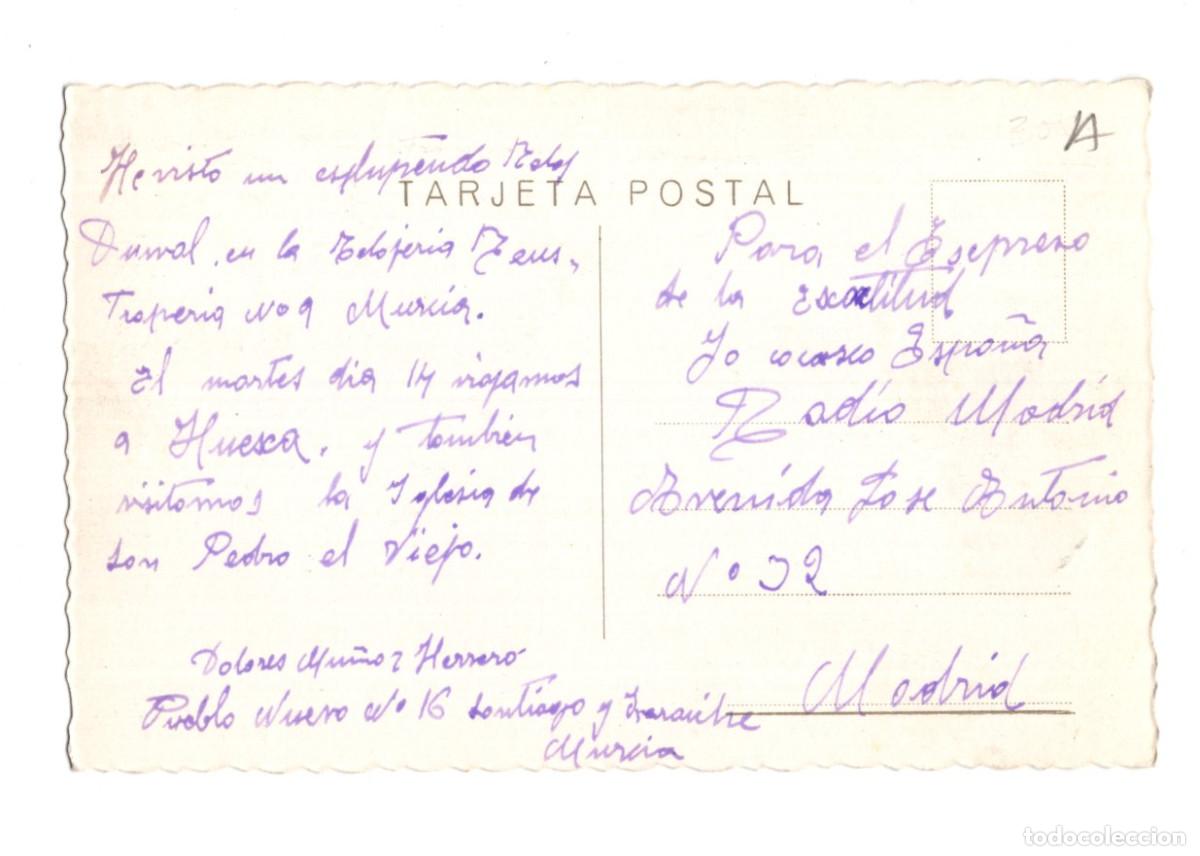 He visto un estupendo Reloj
TARJETA POSTAL
Duwal, en la Relojeria Reus,
Traperia No 9 Murcia.
El martes dia 14 viajamos
a Huesca. y tambien
visitamos la Iglesia de
San Pedro el Viejo.
Dolores Muñoz Herrero
Pueblo Nuevo Nº 16 Santiago y Zaraiche
Murcia
Para el Esepreso
de la Exactitud
Yo conosco España
Radio Madrid
Avenida Jose Antonio
Nº 32
Madrid
todocoleccion